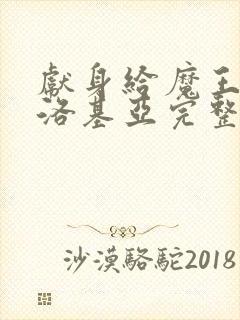 獻身給魔王
洛基亞完整
沙漠駱駝2018